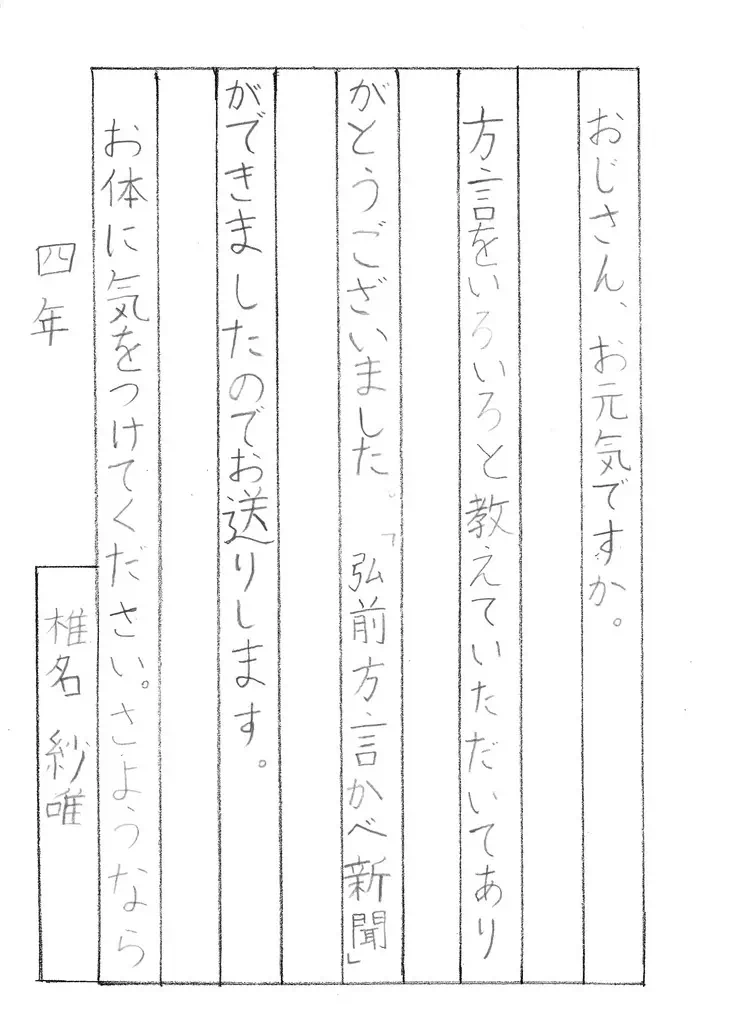 おじさん、お元気ですか。
方言をいろいろと教えていただいてあり
がとうございました。「弘前方言かべ新聞」
ができましたのでお送りします。
お体に気をつけてください。さようなら
四年
椎名 紗唯